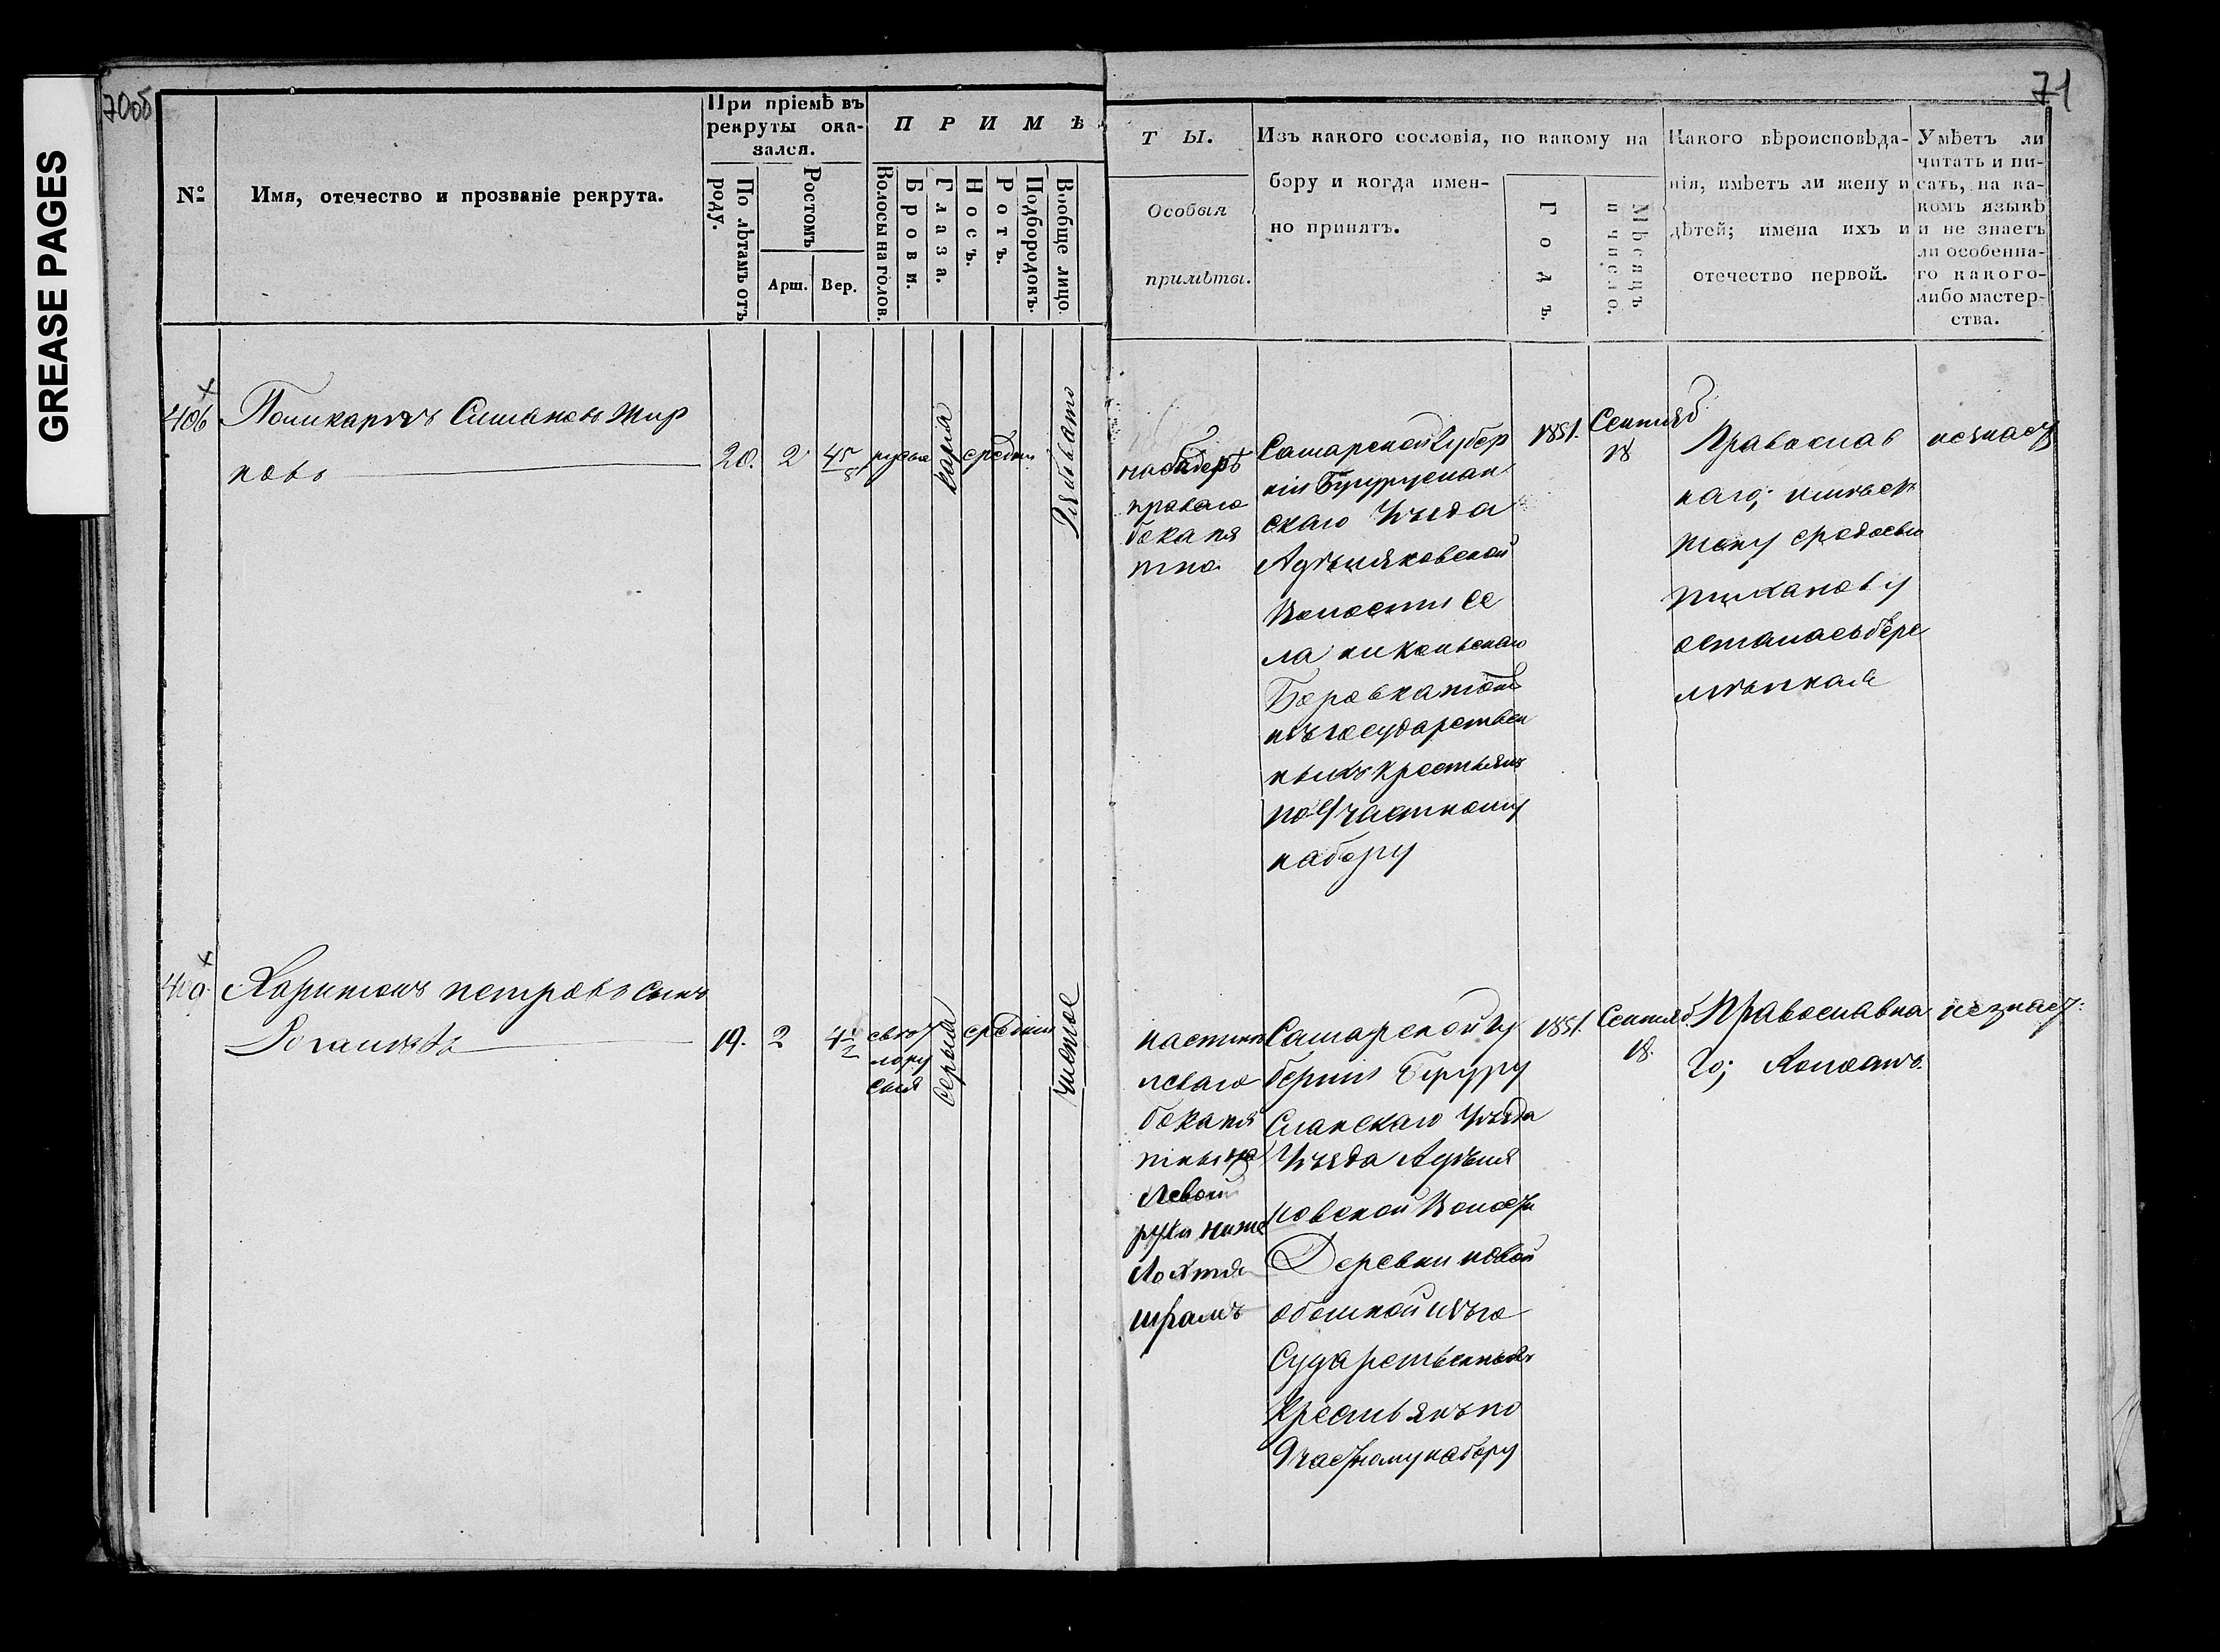 GREASE PAGES
70об
71
№
Имя, отечество и прозваніе рекрута.
При пріемѣ въ
рекруты ока-
зался.
По лѣтамъ отъ
роду.
Ростомъ
Арш.
Вер.
ПРИМѢ
Волосы на голов.
Брови.
Глаза.
Носъ.
Ротъ.
Подбородокъ.
Вообще лицо.
ТЫ.
Особыя
примѣты.
Изъ какого сословія, по какому на
бору и когда имен-
но принятъ.
Годъ.
Мѣсяцъ
и число.
Какого вѣроисповѣда-
нія, имѣетъ ли жену и
дѣтей; имена ихъ и
отечество первой.
Умѣетъ ли
читать и пи-
сать, на ка-
комъ языкѣ
и не знаетъ
ли особенна-
го какого-
либо мастер-
ства.
406
Поликарпъ Симановъ Жир
новъ
20.
2
4 5/8
русые
карія
средн.
Рябовато
правого
бока пя
тно
Самарской губер
ніи Бугуруслан
скаго Уѣзда
Волости се
ла никольскаго
изъ государствен
ныхъ крестьянъ
по 9 частному
набору
1851.
Сентяб.
18
Православ
наго; имѣетъ
жену
осталась бере
мѣнная
не знаетъ
Харитонъ петровъ сынъ
19.
2
4 1/2
свѣт
лору
сыя
серыя
средніи
чистое
леваго
бока пя
тны на
левой
руки ниже
локтя
шрамъ
Самарской гу
берніи Бугуру
Сланскаго Уѣзда
Уѣзда
ковской Волости
Деревни новой
изъ го
Сударственныхъ
Крестьянъ по
9 частному набору
1851.
Сентяб.
18.
Православна
го; Холостъ.
не знает: